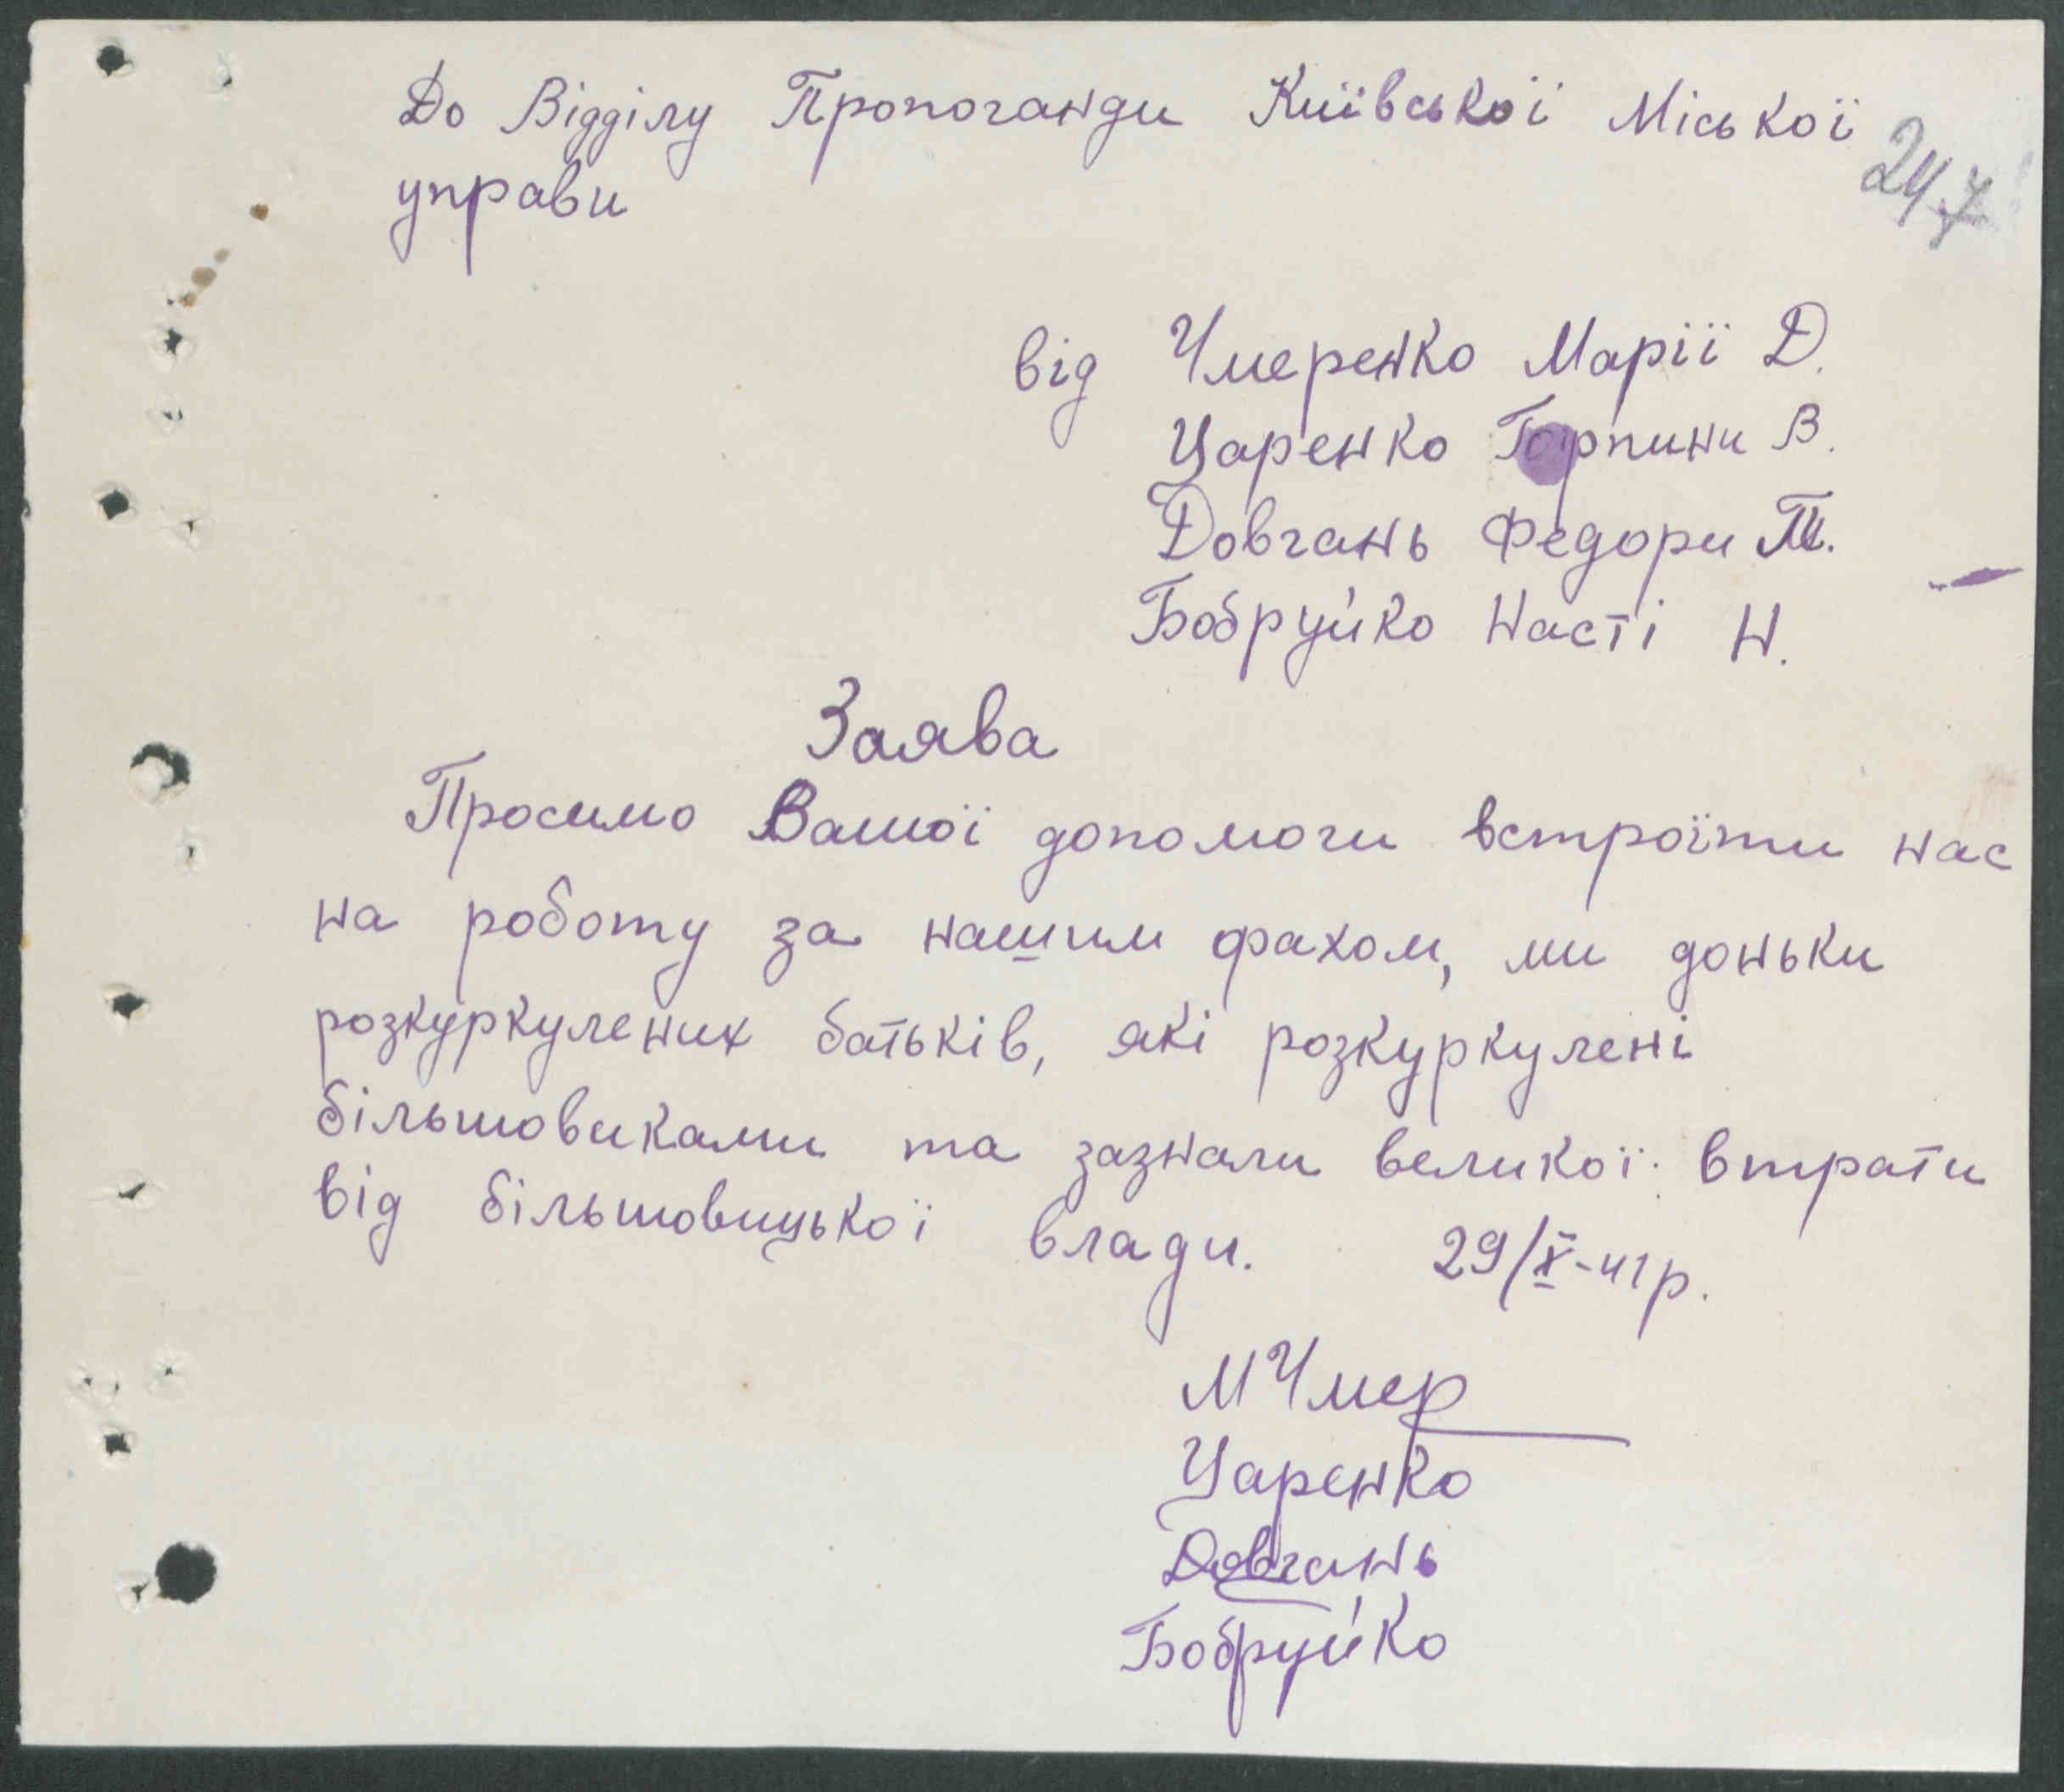 До Відділу Пропоганди Київської Міської
247
управи
від Чмеренко Марії Д.
Царенко Горпини В.
Довгань Федори Т.
Бобруйко Насті Н.
Заява
Просимо Вашої допомоги встроїти нас
на роботу за нашим фахом, ми доньки
розкуркулених батьків, які розкуркулені
більшовиками та зазнали великої втрати
від більшовицької влади. 29/X-41р.
МЧмер
Царенко
Довгань
Бобруйко